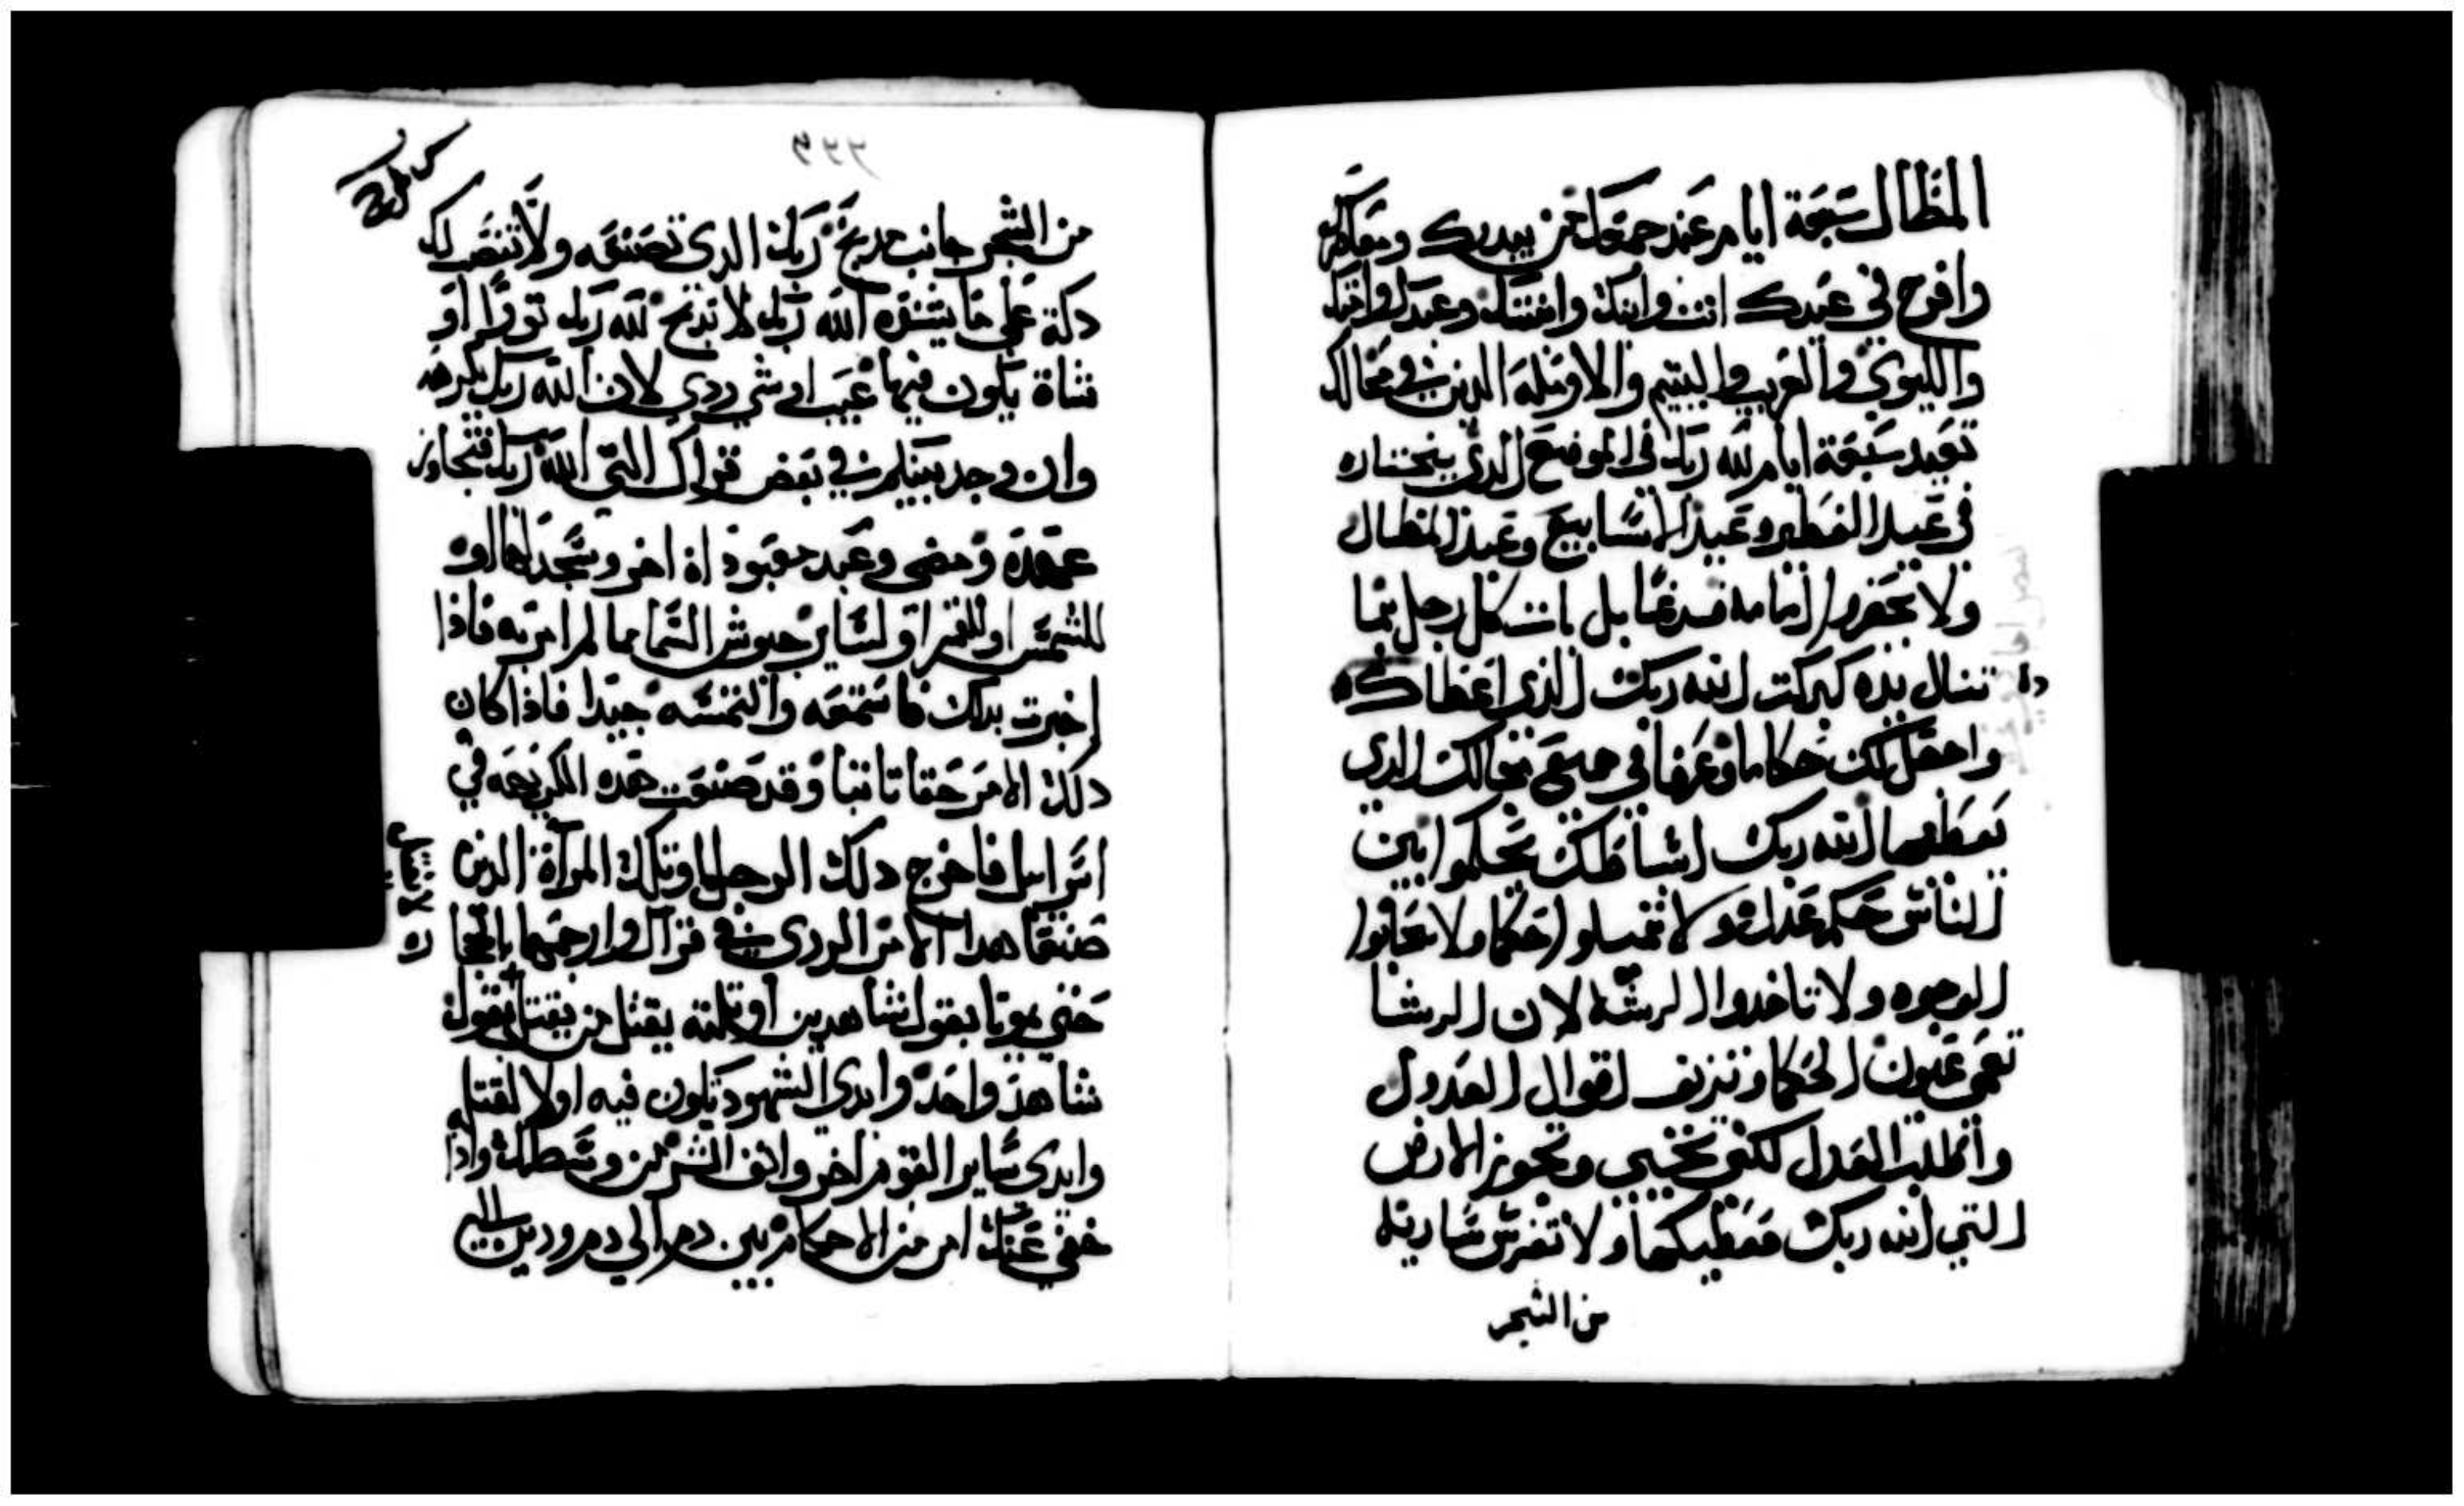 المظال سبعة ايام عند جمعك من بيدرك ومعاصرك
وافرح في عيدك انت وابنك وابنتك وعبدك وامتك
والليوي والغريب واليتيم والارمله الذين في محالك
تعيد سبعة ايام لله ربك في الموضع الذي يختاره
في عيد الفطير وعيد الاسابيع وعيد المظال
ولا يحضروا امامه فرغا بل يات كل رجل بما
تنال يده كبركت الله ربك الذي اعطاكه
واجعل لك حكاما وعرفا في جميع محالك الذي
يعطيها الله ربك اسباطك يحكموا بين
الناس حكم عدل ولا تميلوا حكما ولا تحابوا
الوجوه ولا تاخدوا الرشا لان الرشا
تعمي عيون الحكام وتزيف اقوال العدول
واطلب العدل لكي تحيي وتحوز الارض
التي الله ربك معطيكها ولا تغرس ساريه
من الشجر
٢٢٩
من الشجر جانب مدبح ربك الدي تصنعه ولا تنصب لك
دكة علي ما يشنوه الله ربك لا تدبح لله ربك تورا او
شاة يكون فيها عيب او شي ردي لان الله ربك يكرهه
وان وجد بينكم في بعض قراك التي الله ربك فتجاوز
عهده ومضي وعبد معبود اخر وسجد لها او
للشمس او للقمر او لساير جيوش السما مما لم امر به فاذا
اخبرت بدلك فاسمعه والتمسه جيدا فاذا كان
دلك الامر حقا تابتا وقد صنعت هده الكريهه في
اسراييل فاخرج دلك الرجل او تلك المراة الذين
صنعا هدا الامر الردي في قراك وارجمهما بالحجا
ره
حتي يموتا بقول شاهدين او تلته يقتل من يقتل بقول
شاهد واحد وايدي الشهود تكون فيه اولا لقتله
وايدي ساير القوم اخر وانف الشر من وسطك واذا
خفي عنك امر من الاحكام بين دم الي دم ودين الي